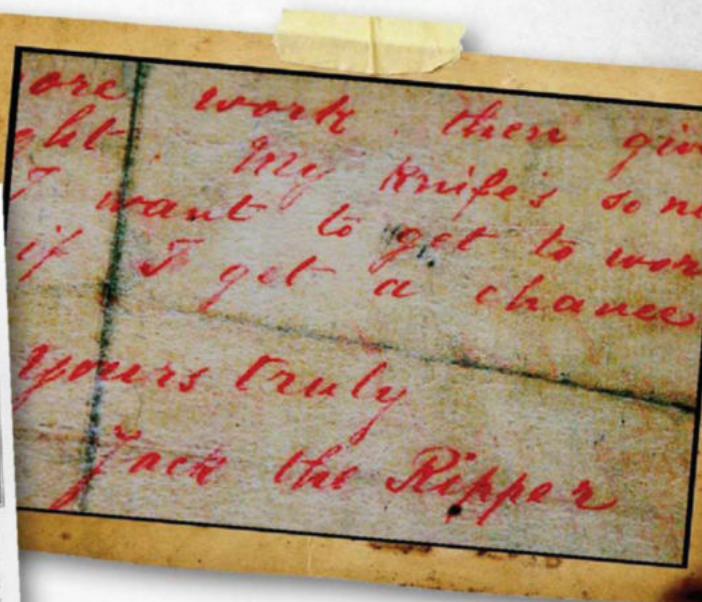 ore work then giv
ght. My Knife's so n
I want to get to wor
if I get a chance
Yours truly
Jack the Ripper